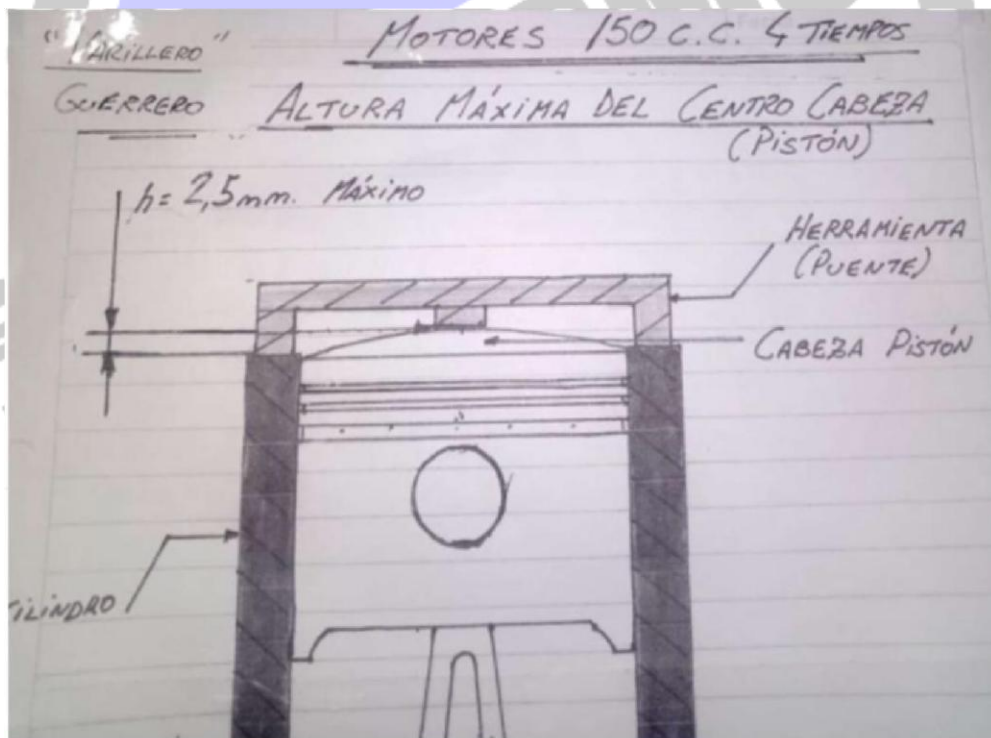 "VARILLERO"
MOTORES 150 C.C. 4 TIEMPOS
GUERRERO
ALTURA MÁXIMA DEL CENTRO CABEZA
(PISTÓN)
h = 2,5 mm. MÁXIMO
HERRAMIENTA
(PUENTE)
CABEZA PISTÓN
CILINDRO